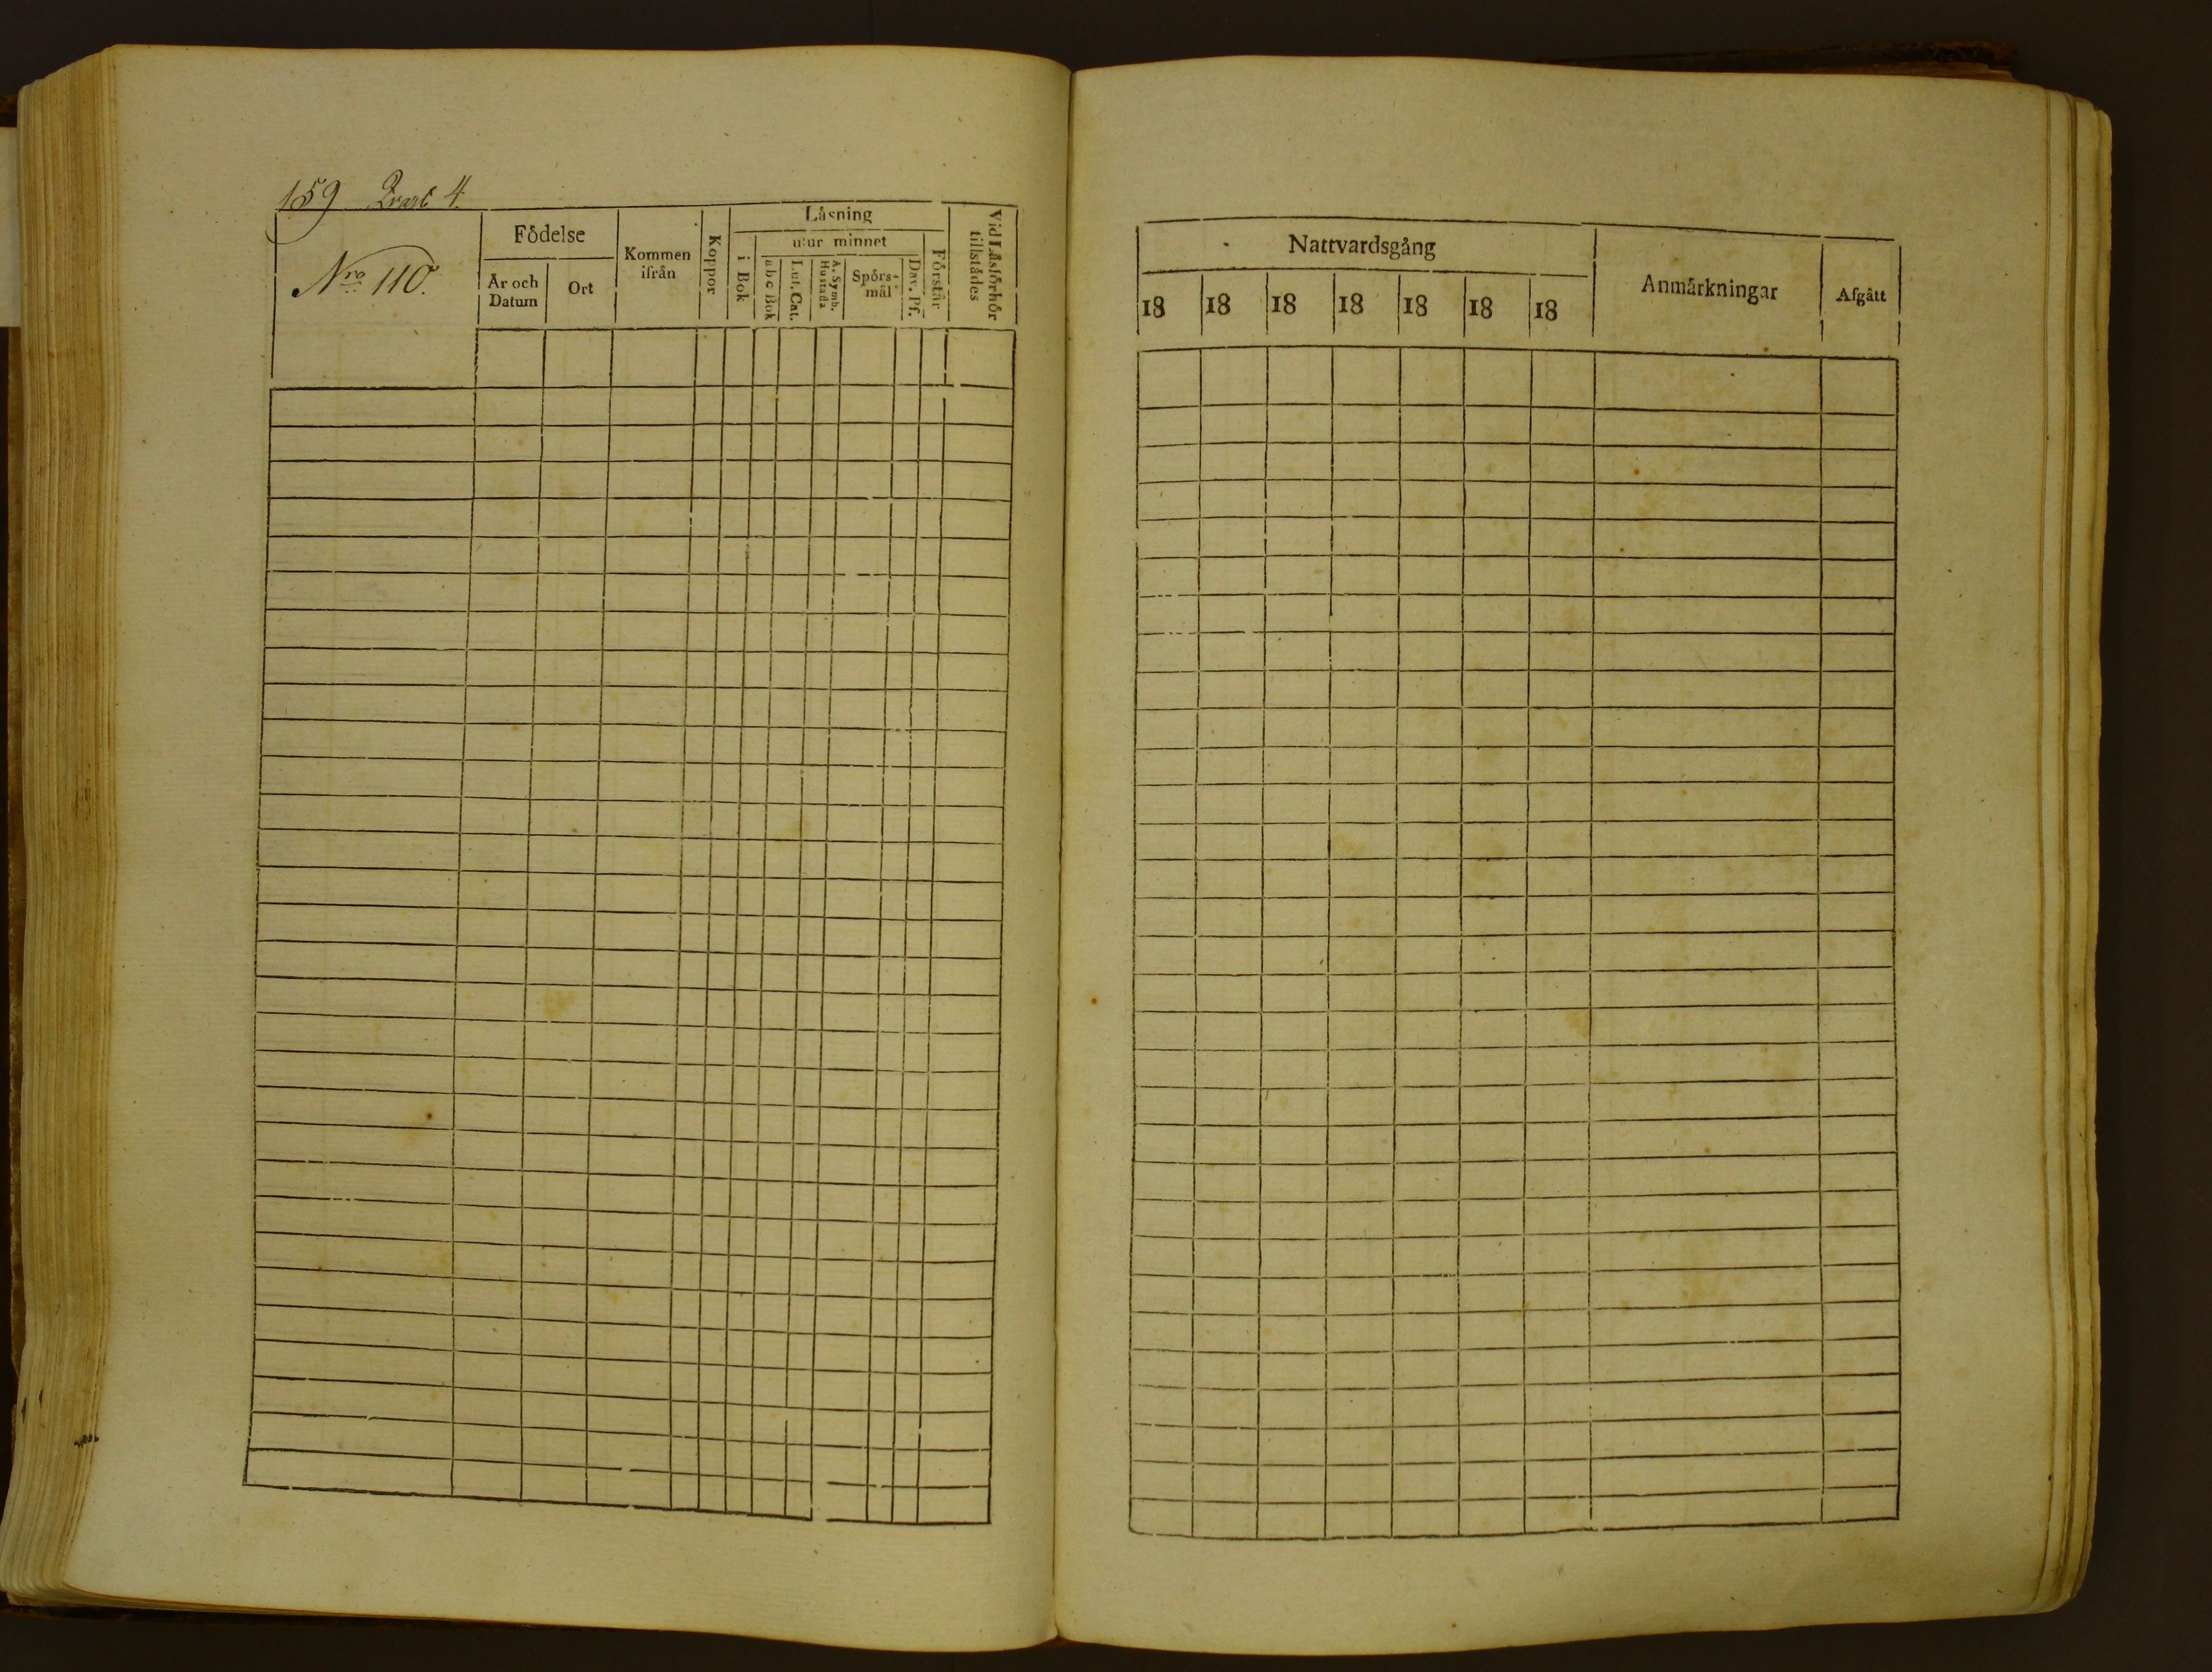 159 Qvart 4.
Nro 110.
Födelse
År och
Datum
Ort
Kommen
ifrån
Koppor
Läsning
i Bok
utur minnet
a b c Bok
Lut. Cat.
A. Symb.
Hustafla
Spörs-
mål
Dav. Ps.
Förstår
Vid Läsförhör
tillstädes
Nattvardsgång
18 18 18 18 18 18 18
Anmärkningar
Afgått